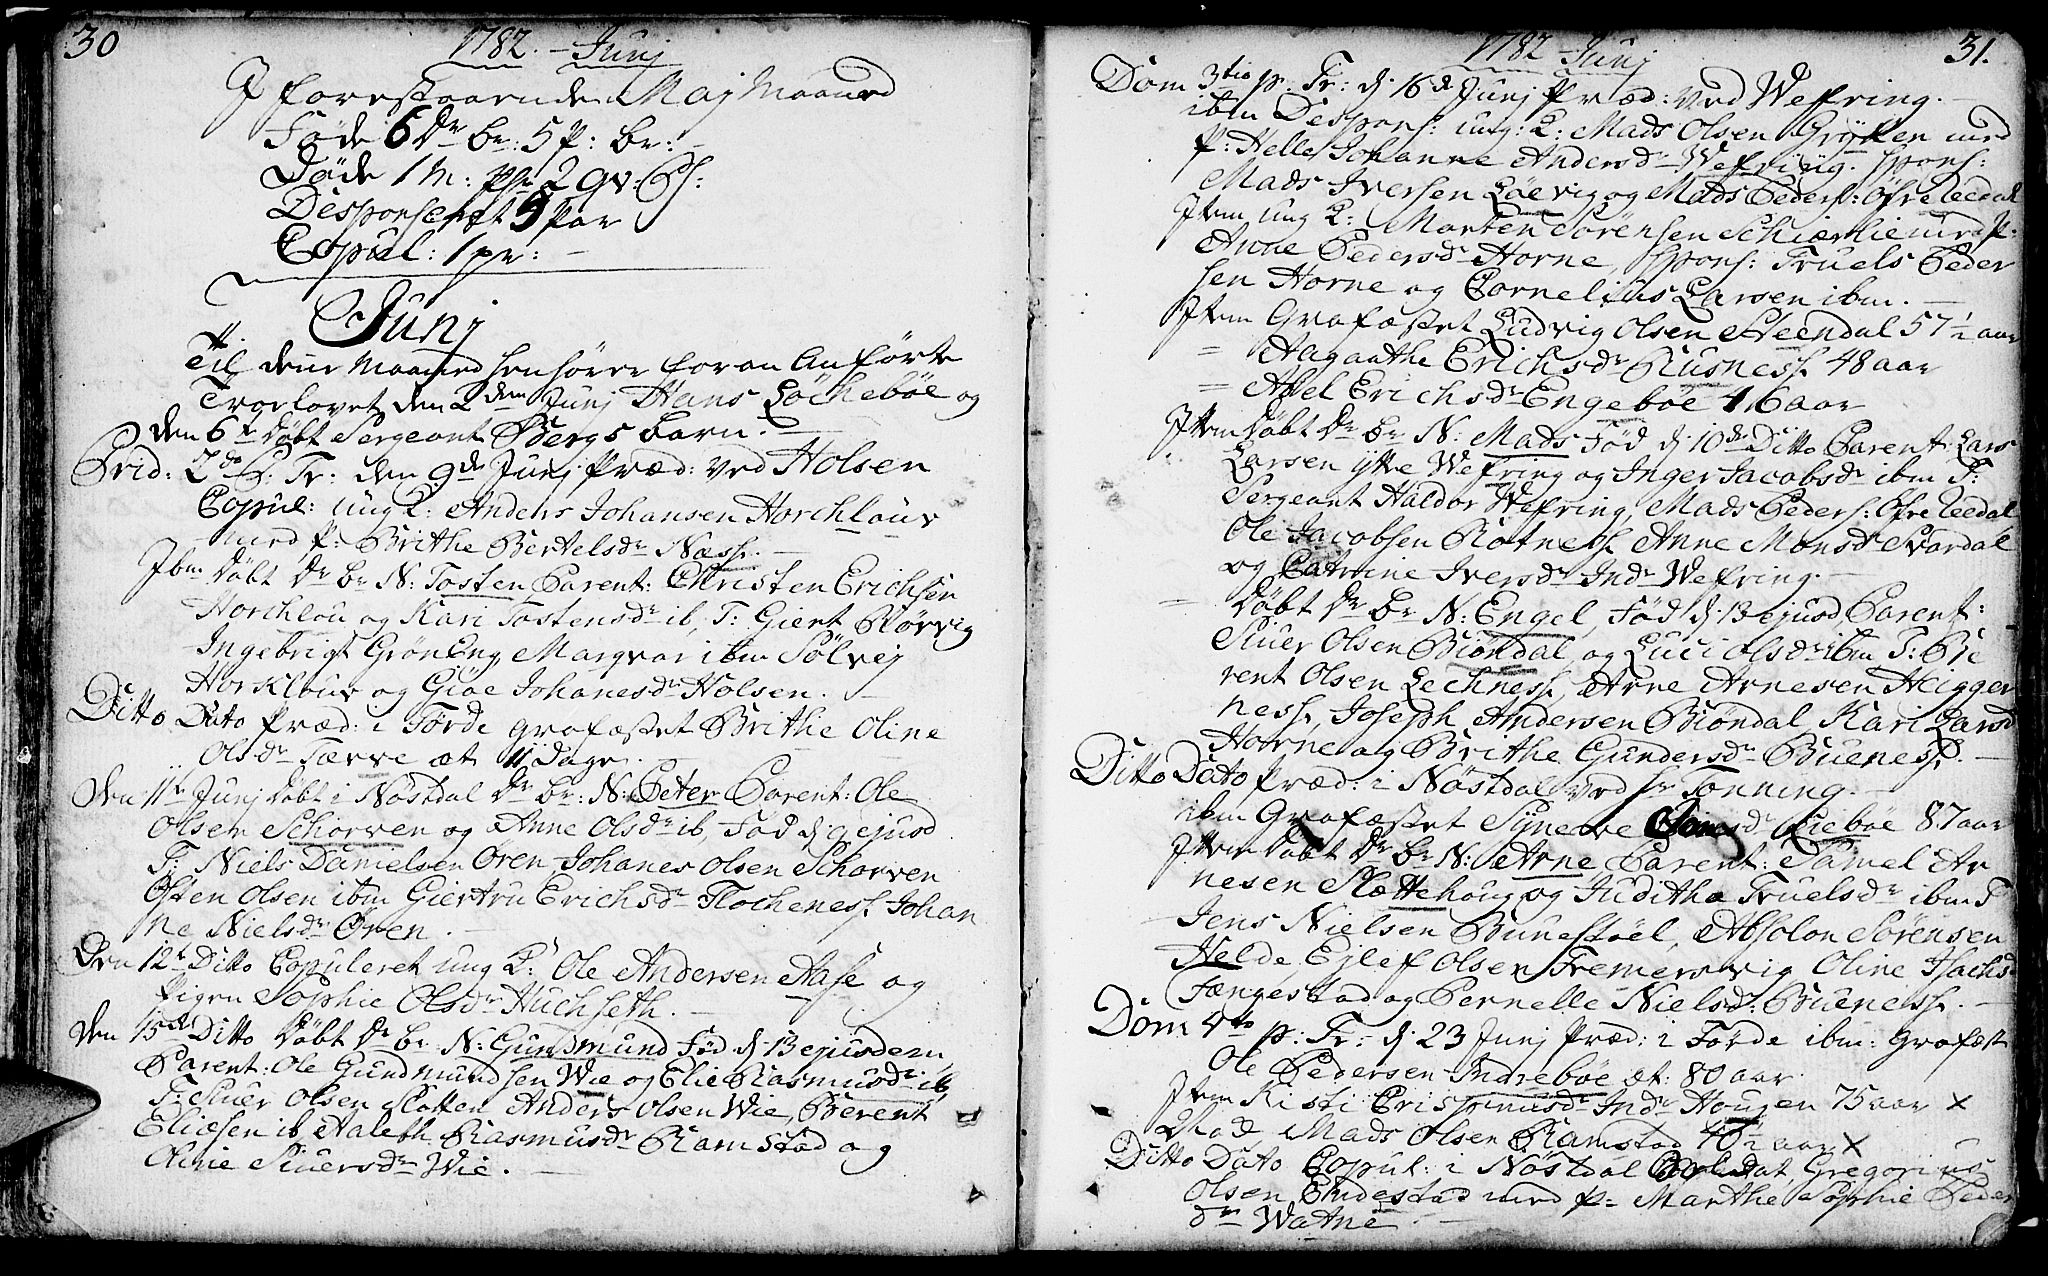 30
1782. - Junj
J forestaaende Maj Maaned
Föde 6 Dr. br: 5 P: br: -
Döde 1 M: 2 gv:
Desponseret 5 Par
Copul: 1 pr: -
Junj
Til denne Maaned henhörer foran Anförte
Troelovet den 2den Junj Hans Löcheböe og
den 6te döbt Sergeant Bergs barn. -
Trid: 2da p. Tr: den 9de Junj Præd: ved Holsen
Copul: ung K: Anders Johansen Horchlour
med P: Brithe Bertelsdr Næss. -
Ibm döbt Dr br N: Tosten Parent: Christen Erichsen
Horchlou og Kari Tostensdr ib, T: Giert Rörvig
Ingebrigt GrönEng Marqvar ibm Sölvej
Horklour og Giöe Johanesdr Holsen. -
Ditto Dato Præd: i Förde grafæstet Brithe Oline
Olsdr Tærre æt 11 Dage. -
Den 11te Junj döbt i Nöstdal Dr br: N: Peter Parent: Ole
Olsen Schorven og Anne Olsdr ib, Föd d: 9 ejusd
T: Niels Danielsen Ören Johanes Olsen Schorven
Osten Olsen ibm Giertru Erichsdr Flocheness Johan
ne Nielsdr Ören. -
Den 12te Ditto Copuleret ung K: Ole Andersen Aase og
Pigen Sophie Olsdr Huchseth. -
Den 15de Ditto döbt Dr br N: Gundmund Föd d: 13 ejusdem
Parent: Ole Gundmundsen Wie og Elie Rasmusdr ib,
T: Siuer Olsen Slotten Anders Olsen Wie, Berent
Eliæsen ib Aaleth Rasmusdr Ramstad og
Oline Siuersdr Wie. -
1782 - Junj
31.
Dom 3tia p. Tr: d: 16de Junj Præd: ved Wefring. -
ibm Despons: ung: K: Mads Olsen Gryten med
P: Helle Johanne Andersdr Wefring. spons:
Mads Iversen Löevig og Mads Peders: Öfre Leedal
Item ung K: Morten Sörensen Schierlie med P:
Anne Pedersdr Horne, spons: Truels Peder
sen Horne og Cornelius Larsen ibm. -
Item Grafæstet Ludvig Olsen Steendal 57 1/2 aar
= Aagaathe Erichsdr Rusness 48 aar
= Abel Erichsdr Engeböe 16 aar
Item döbt Dr br N: Mads Föd d: 10de Ditto Parent: Lars
Larsen ytte Wefring og Inger Jacobsdr ibm T:
Sergeant Haldor Wefring, Mads Peders: Öfre Leedal
Ole Jacobsen Rötness Anne Monsdr Svardal
og Catrine Iversdr Indr Wefring. -
= döbt Dr br N: Engel, Föd d: 13 ejusd Parent:
Siuer Olsen Biöndal og Luci Olsdr ibm T: Be
rent Olsen Lechness, Arne Arnesen Heggen
ness, Joseph Andersen Biöndal Kari Larsd
Horne og Brithe Gundersdr Bueness. -
Ditto Dato Præd: i Nöstdal ved Hr Tönning. -
ibm Grafæstet Synneve Lieböe 87 aar
Item döbt Dr br N: Arne Parent: Samel Ar
nesen Slættehoug og Juditha Truelsdr ibm T
Jens Nielsen Bunestöel, Absolon Sörensen
Helde Ejlef Olsen Fremersvig Oline Isachsd
Fængestad og Pernelle Nielsdr: Bueness. -
Dom 4ta p: Tr: d: 23 Junj Præd: i Förde ibm: Grafæst
Ole Pedersen Indreböe æt: 80 aar.
Item Kisti Crispinusdr Indr Hougen 75 aar x
Mads Olsen Ramstad 40 1/2 aar x
Ditto Dato Copul: i Nöstdal Soldat Gregorius
Olsen Endestad med P: Marthe Sophie Peder
dr Watne -